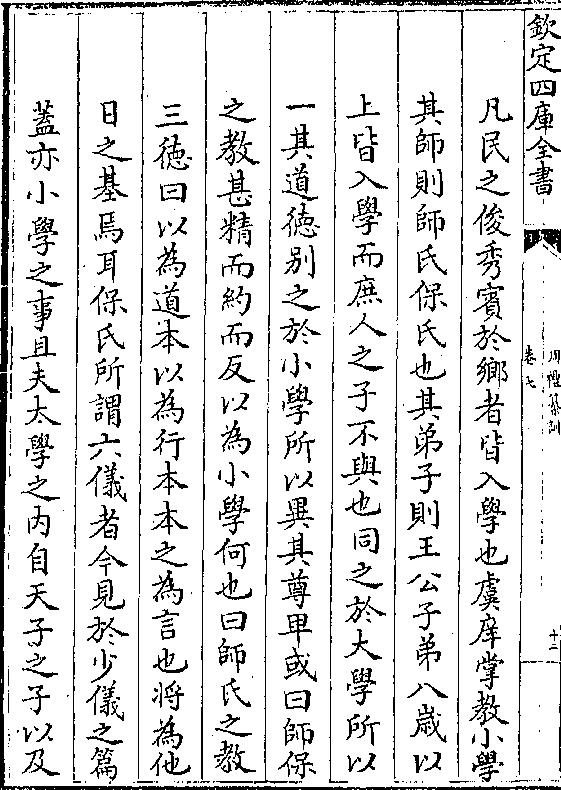 欽定四庫全書
周禮纂訓
卷七
十二
凡民之俊秀賓於鄉者皆入學也虞庠掌教小學
其師則師氏保氏也其弟子則王公子弟八歲以
上皆入學而庶人之子不與也同之於大學所以
一其道徳别之於小學所以異其尊卑或曰師保
之教甚精而約而反以為小學何也曰師氏之教
三徳曰以為道本以為行本本之為言也将為他
日之基焉耳保氏所謂六儀者今見於少儀之篇
葢亦小學之事且夫太學之内自天子之子以及